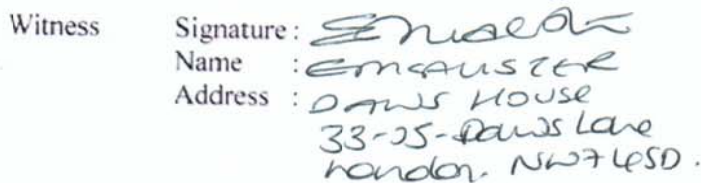 Witness Signature :
Name : E MCALISTER
Address : DAWS HOUSE
33-35-Daws Lane
London. NW7 4SD.